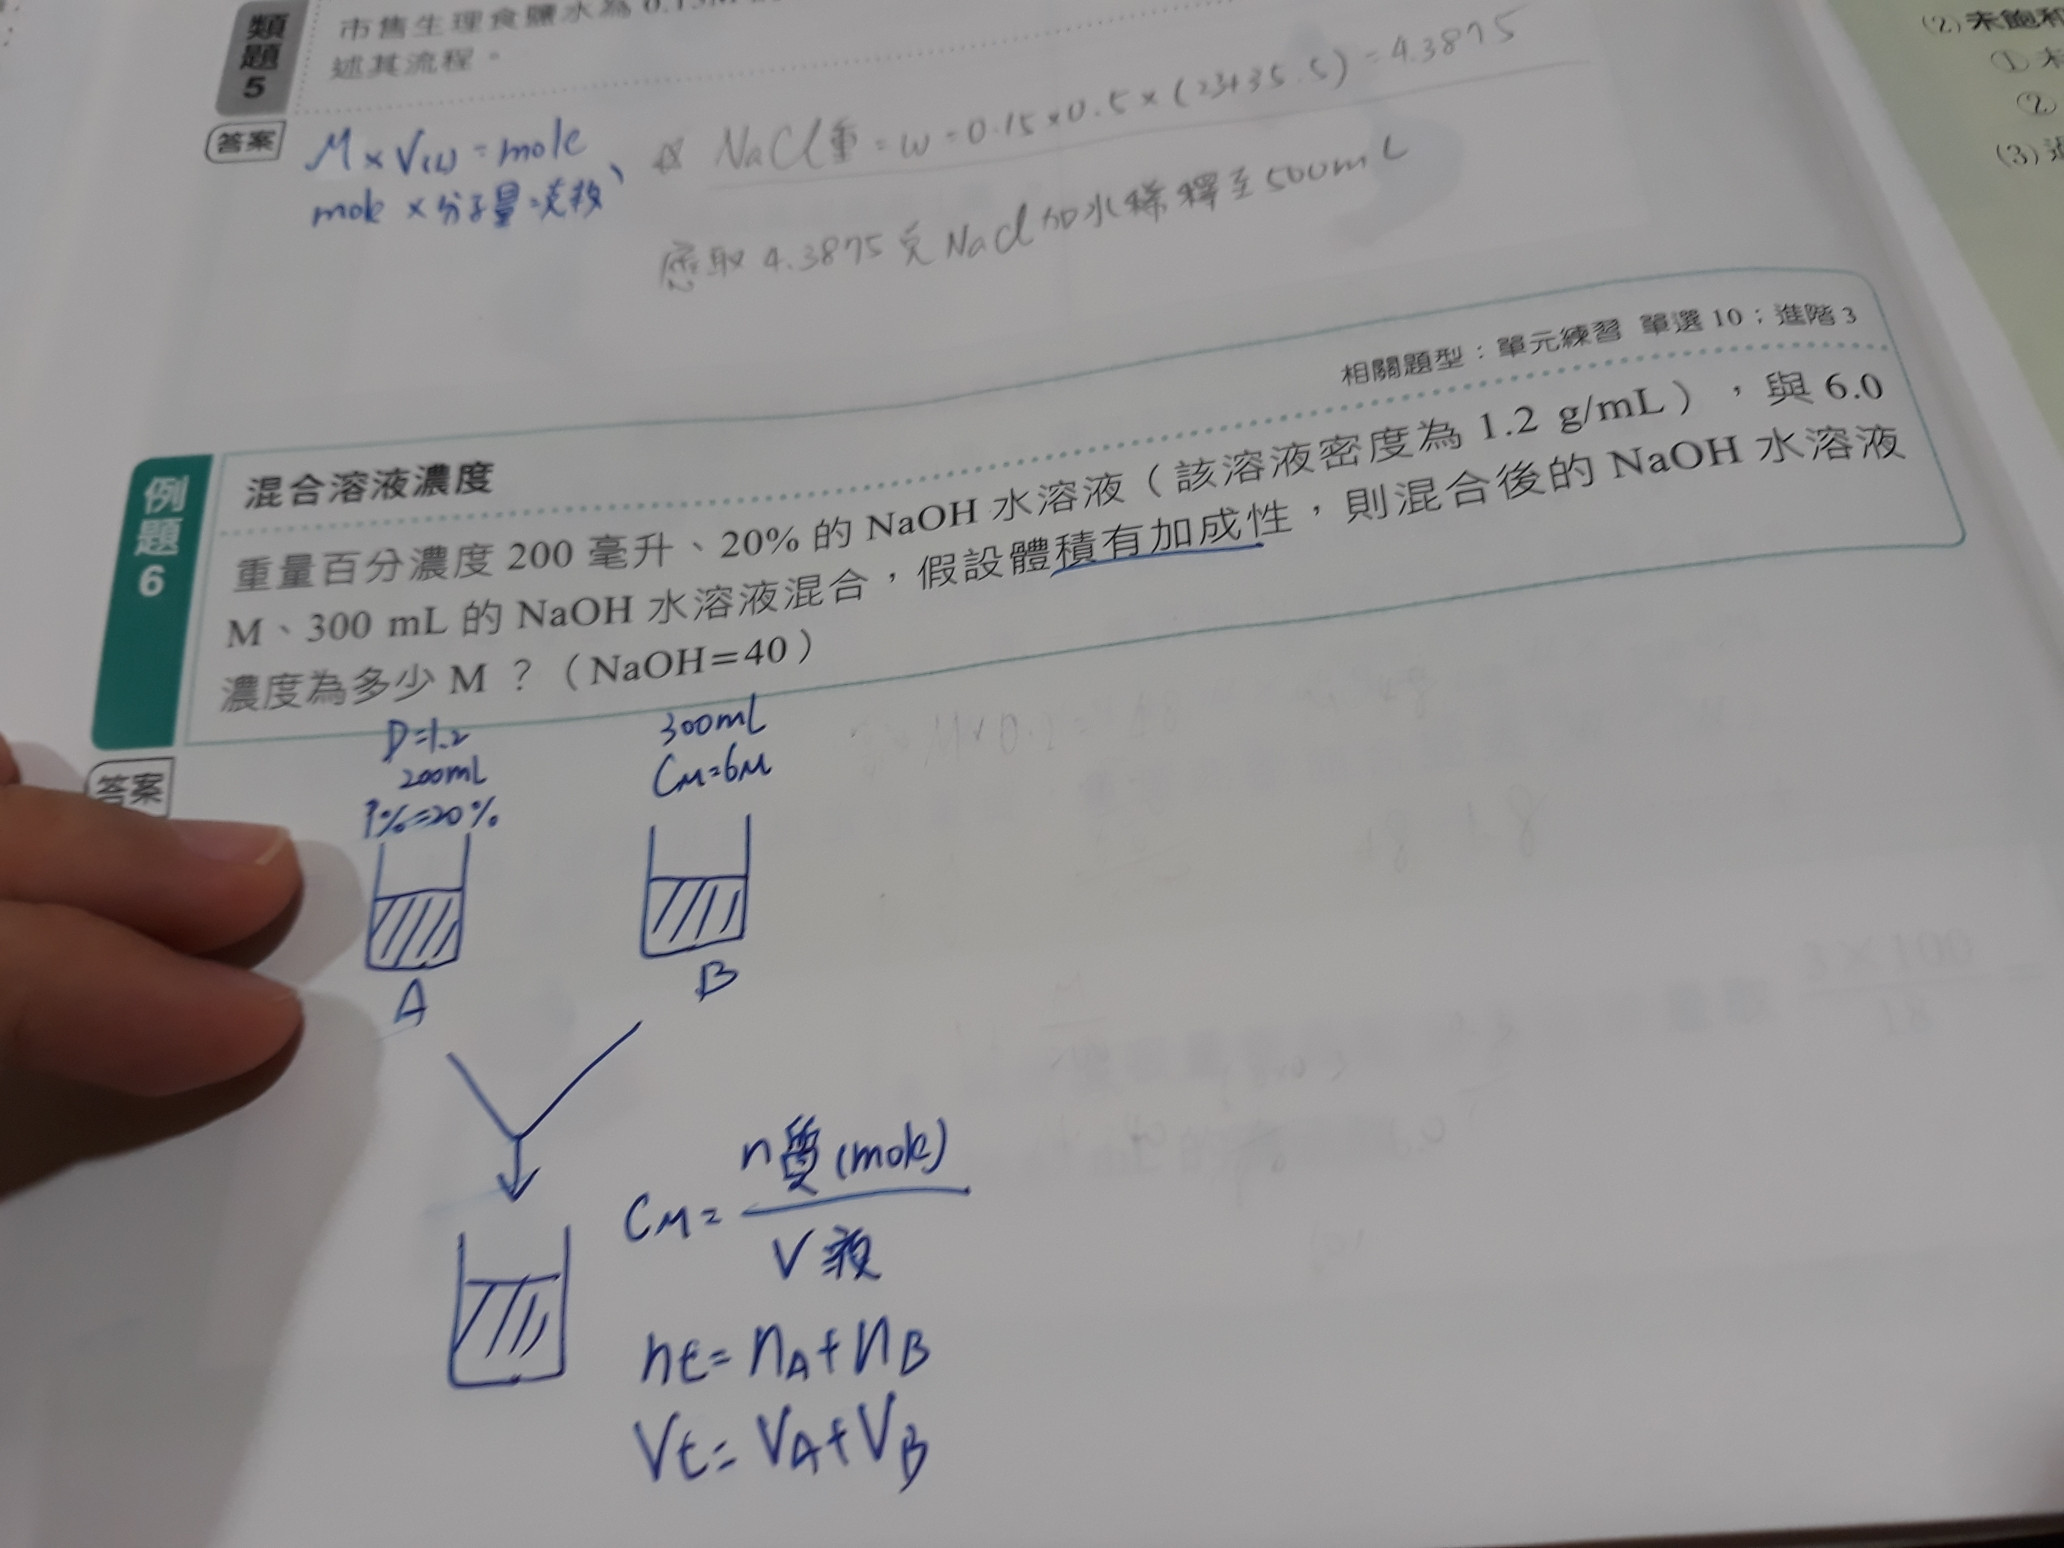 類題5
市售生理食鹽水為 0.15M
述其流程。
答案
M×V(L)=mole
mole×分子量=克數、
NaCl重=w=0.15×0.5×(23+35.5)=4.3875
應取4.3875克NaCl加水稀釋至500mL
(2)未飽和
①未
②
(3)
相關題型：單元練習 單選10；進階3
例題6
混合溶液濃度
重量百分濃度 200 毫升、20% 的 NaOH 水溶液（該溶液密度為 1.2 g/mL），與 6.0
M、300 mL 的 NaOH 水溶液混合，假設體積有加成性，則混合後的 NaOH 水溶液
濃度為多少 M ？（NaOH=40）
答案
D=1.2
200mL
P%=20%
A
300mL
CM=6M
B
CM= n質(mole)
V液
nt=nA+nB
Vt=VA+VB